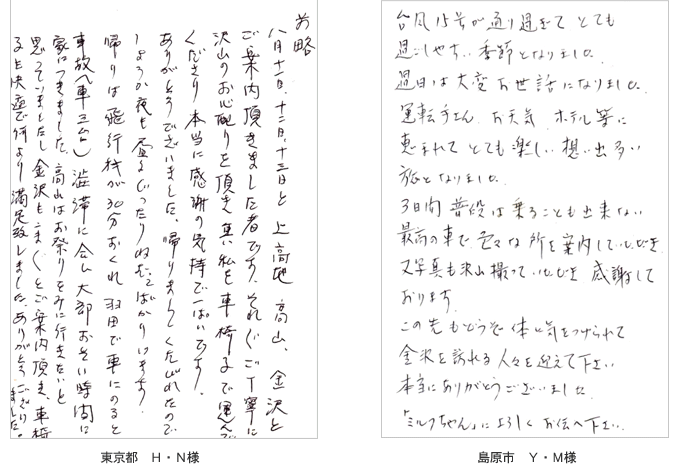 前略
八月十一日、十二日、十三日と上高地、高山、金沢と
ご案内頂きました者です。それぞれご丁寧に
沢山のお心配りを頂き 重い私を車椅子で運んで
くださり本当に感謝の気持で一ぱいです。
ありがとうございました。帰りましてくたびれたので
しょうか夜も昼もぐったりねむってばかりいます。
帰りは飛行機が30分おくれ羽田で車にのると
車故(八車 渋滞に合い大部おそい時間に
家につきました。高山はお祭りをみに行きたいと
思っていましたし金沢もすみずみとご案内頂き、車椅
るも快適で何より満足致しました。ありがとうござい
ました。
台風15号が通り過ぎて とても
過ごしやすい季節となりました。
過日は大変お世話になりました。
運転手さん お天気 ホテル等に
恵まれて とても楽しい想い出多い
旅となりました。
3日間 普段は乗ることも出来ない
最高の車で 色々な所を案内していただき
又写真も沢山撮っていただき 感謝して
おります。
この先もどうぞ体に気をつけられて
金沢を訪れる人々を迎えて下さい
本当にありがとうございました
「ミルフちゃん」によろしくお伝え下さい。
東京都 H・N様
島原市 Y・M様